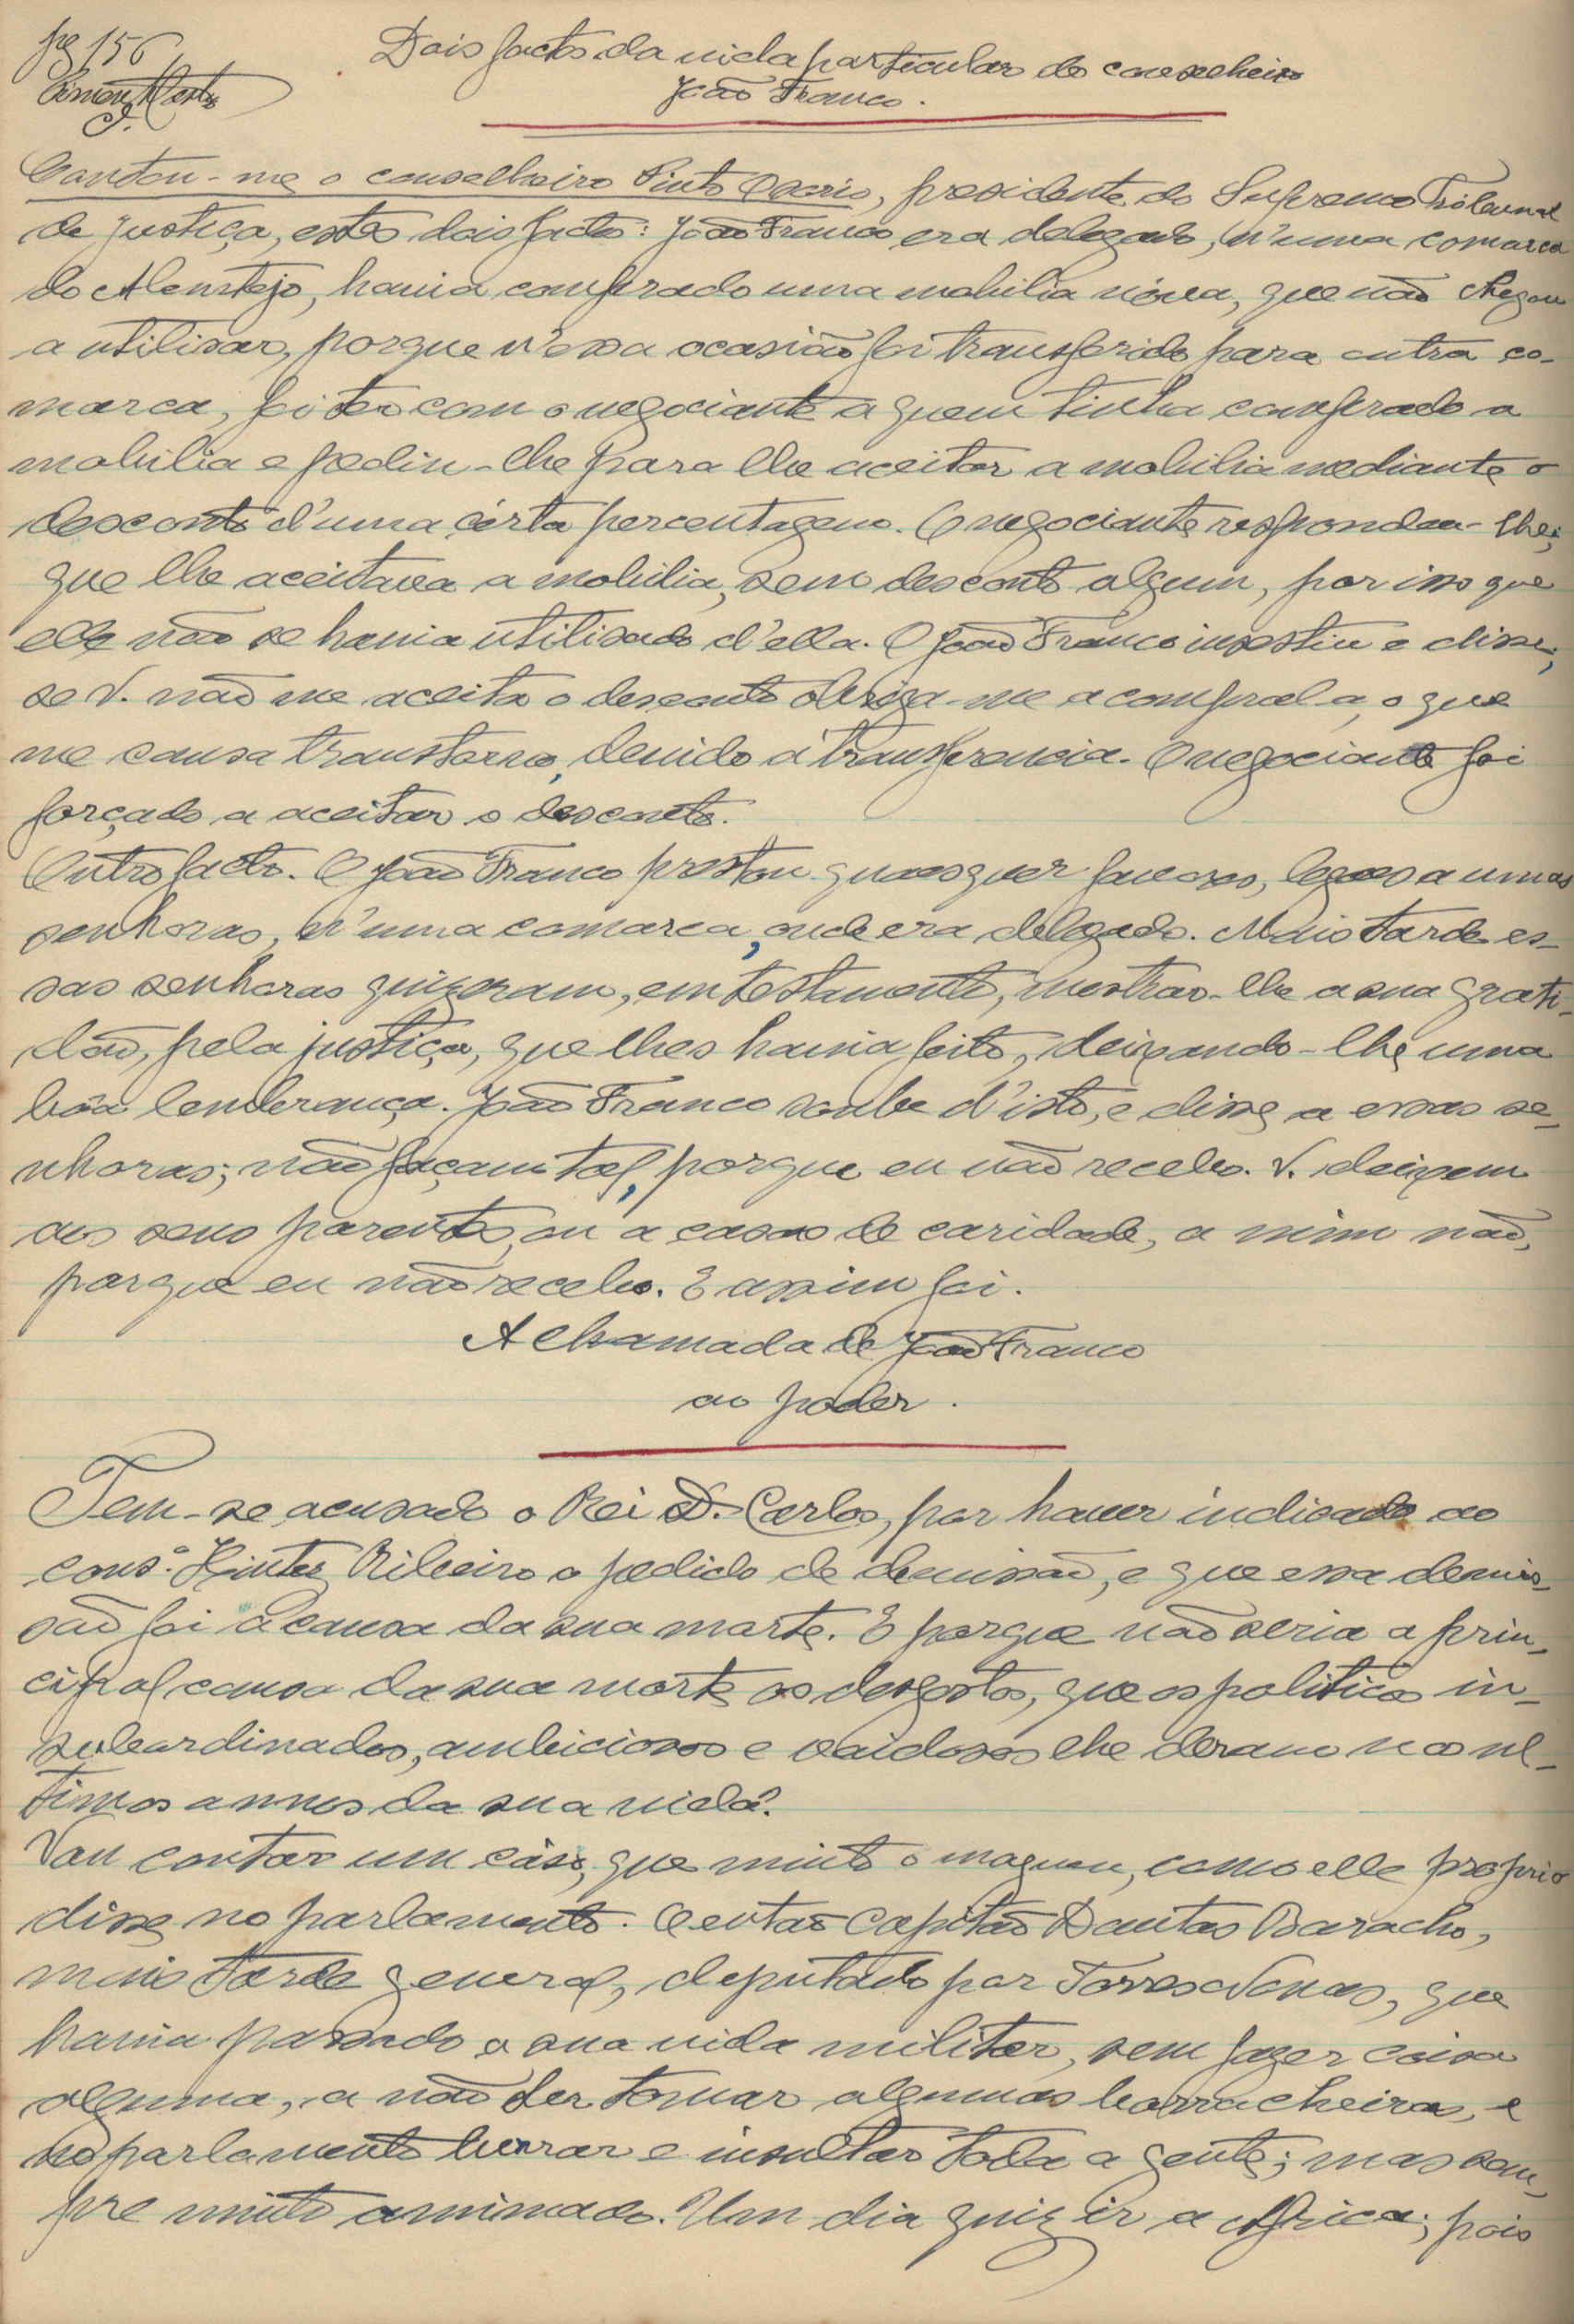 pg 156
Dois factos da vida particular do conselheiro
João Franco.
Contou-me o conselheiro Pinto Osorio, presidente do Supremo Tribunal
de justiça, estes dois factos: João Franco era delegado, n'uma comarca
do Alemtejo, havia comprado uma mobilia nóva, que não chegou
a utilisar, porque n'essa ocasião foi transferido para outra co-
marca, foi ter com o negociante a quem tinha comprado a
mobilia e pediu-lhe para lhe aceitar a mobilia mediante o
desconto d'uma cérta percentagem. O negociante respondeu-lhe;
que lhe aceitava a mobilia, sem desconto algum, por isso que
elle não se havia utilisado d'ella. O João Franco insestiu e disse;
se V. não me aceita o desconto obriga-me a compral-a, o que
me causa transtorno, devido á transferencia. O negociante foi
forçado a aceitar o desconto.
Outro facto. O João Franco prestou quaesquer favores, legaes a umas
senhoras, n'uma comarca, onde era delegado. Mais tarde es-
sas senhoras quizeram, em testamento, mostrar-lhe a sua grati-
dão, pela justiça, que lhes havia feito, deixando-lhe uma
bôa lembrança. João Franco soube d'isto, e disse a essas se-
nhoras; não façam tal, porque eu não recebo. V. deixem
aos seus parentes, ou a casas de caridade, a mim não,
porque eu não recebo. E assim foi.
A chamada de João Franco
ao poder.
Tem-se acusado o Rei D. Carlos, por haver indicado ao
cons.º Hintze Ribeiro o pedido de demissão, e que essa demis-
são foi a causa da sua morte. E porque não seria a prin-
cipal causa da sua morte os desgostos, que os politicos in-
subordinados, ambiciosos e vaidosos lhe deram nos ul-
timos annos da sua vida?
Vou contar um cáso, que muito o magoou, como elle proprio
disse no parlamento. O então capitão Dantas Baracho,
mais tarde general, deputado por Torres Novas, que
havia passado a sua vida militar, sem fazer coisa
alguma, a não ser tomar algumas borracheiras, e
no parlamento berrar e insultar toda a gente; mas sem-
pre muito animado. Um dia quiz ir a Africa; pois